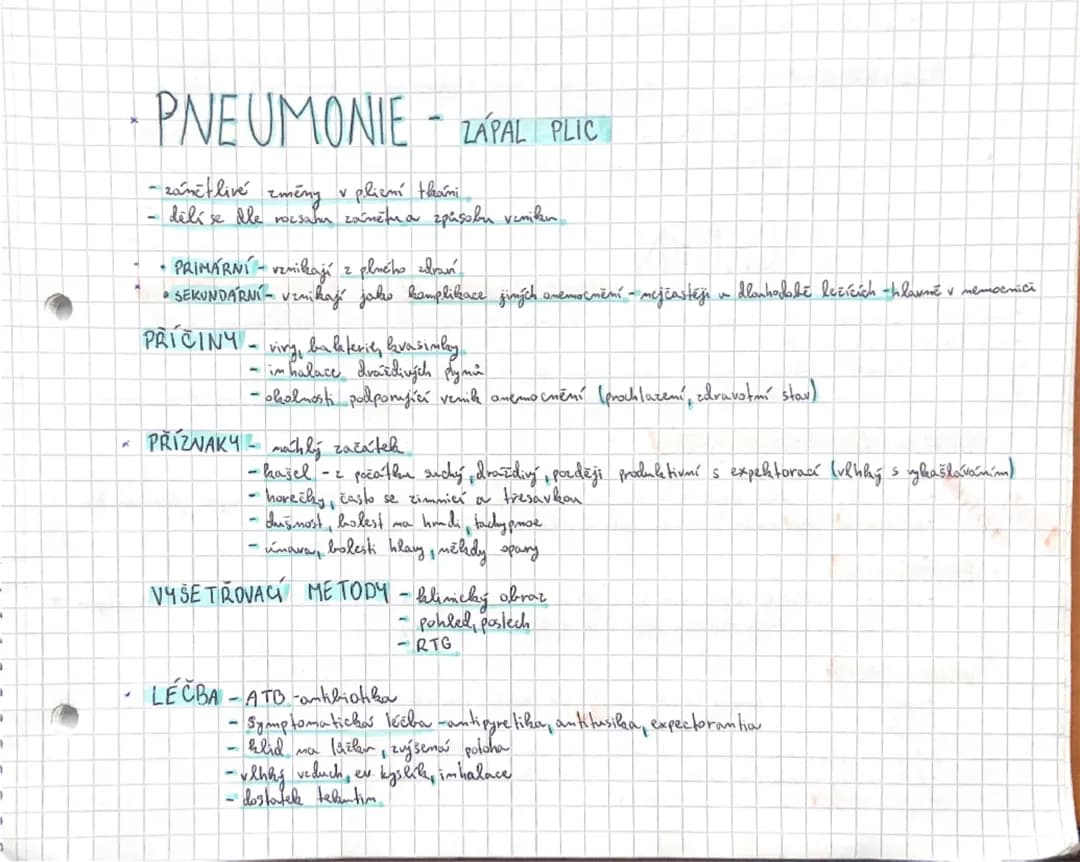 PNEUMONIE - ZÁPAL PLIC
- zánětlivé změny v plicní tkáni
- dělí se dle rozsahu zánětu a způsobu vzniku
• PRIMÁRNÍ - vznikají z plného zdraví
• SEKUNDÁRNÍ - vznikají jako komplikace jiných onemocnění - nejčastěji u dlouhodobě ležících - hlavně v nemocnici
PŘÍČINY - viry, bakterie, kvasinky
- inhalace dráždivých dýmů
- okolnosti podporující vznik onemocnění (prochlazení, zdravotní stav)
PŘÍZNAKY - náhlý začátek
- kašel - z počátku suchý, dráždivý, později produktivní s expektorací (vlhký s vykašláváním)
- horečky, často se zimnicí a třesavkou
- dušnost, bolest na hrudi, tachypnoe
- únava, bolesti hlavy, někdy opary
VYŠETŘOVACÍ METODY - klinický obraz
- pohled, poslech
- RTG
LÉČBA - ATB - antibiotika
- symptomatická léčba - antipyretika, antitusika, expectorantia
- klid na lůžku, zvýšená poloha
- vlhký vzduch, ev. kyslík, inhalace
- dostatek tekutin